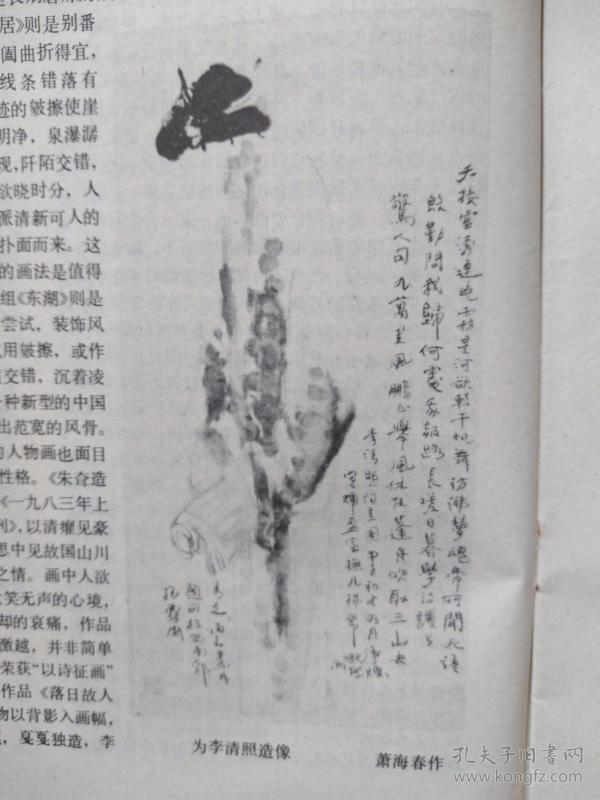 居》则是别番
阖曲折得宜,
线条错落有
迹的皴擦使崖
明净，泉瀑潺
现,阡陌交错,
欲晓时分，人
派清新可人的
扑面而来。这
的画法是值得
组《东湖》则是
尝试，装饰风
用皴擦，或作
交错，沉着凌
一种新型的中国
出范宽的风骨。
的人物画也面目
性格。《朱耷造
《一九八三年上
刊》,以清癯见豪
思中见故国山川
之情。画中人欲
笑无声的心境，
却的哀痛，作品
激越，并非简单
荣获“以诗征画”
作品《落日故人
物以背影入画幅，
，戛戛独造，李
天接雲濤連曉霧星河欲轉千帆舞彷彿夢魂帝所聞天語
殷勤問我歸何處我報路長嗟日暮學詩謾有
驚人句九萬里風鵬正舉風休住蓬舟吹取三山去
为李清照造像
萧海春作
孔夫子旧书网
www.kongfz.com